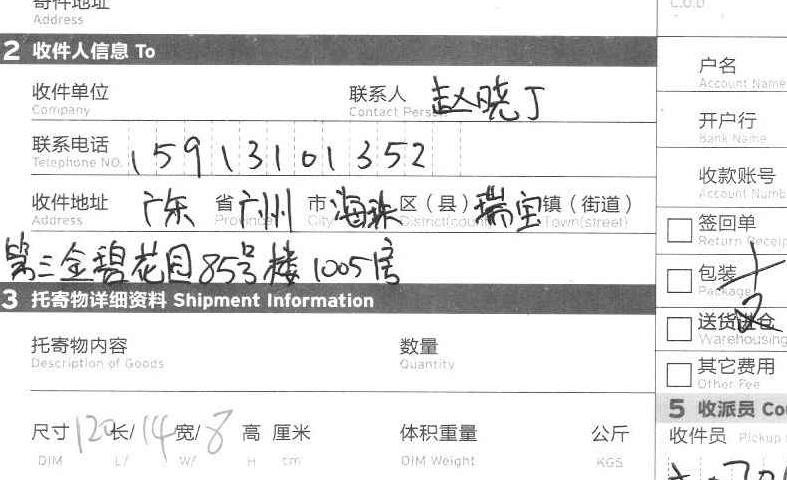 寄件地址
Address
C.O.D
2 收件人信息 To
收件单位 联系人 赵晓丁
Company Contact Person
联系电话 15913101352
Telephone NO.
收件地址 广东 省 广州 市 海珠 区（县） 瑞宝 镇（街道）
Address Province City District(county) Town(street)
第三金碧花园85号楼1005房
3 托寄物详细资料 Shipment Information
托寄物内容 数量
Description of Goods Quantity
尺寸 120 长/ 14 宽/ 8 高 厘米 体积重量 公斤
DIM L/ W/ H cm DIM Weight KGS
户名
Account Name
开户行
Bank Name
收款账号
Account Numb
签回单
Return Receip
包装
Package
送货进仓
Warehousing
其它费用
Other Fee
5 收派员 Cou
收件员 Pickup